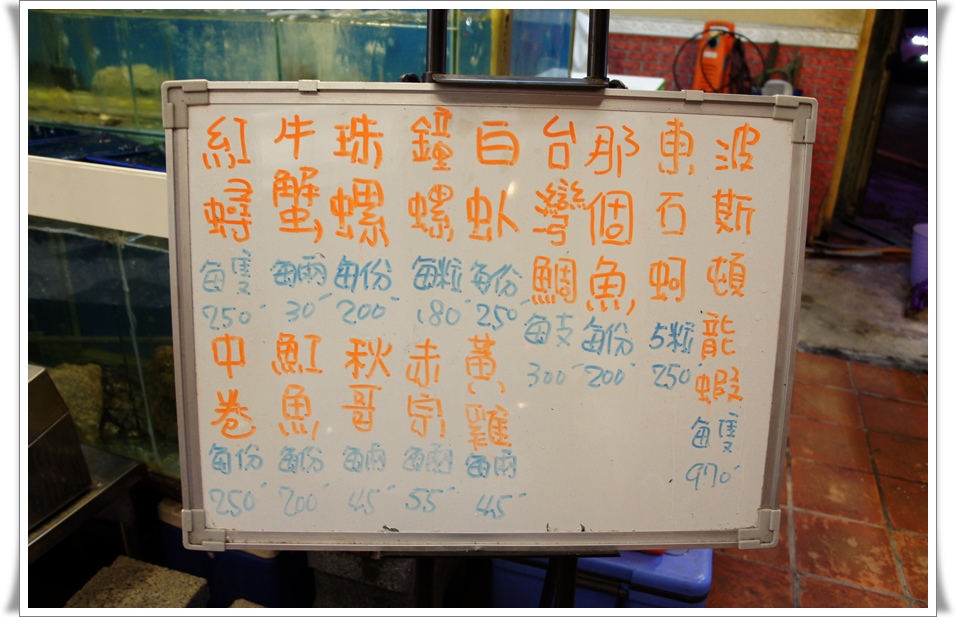 波斯頓龍蝦
每隻
970
東石蚵
5粒
250
那個魚
每份
200
台灣鯛
每支
300
白虾
每份
250
鐘螺
每粒
180
珠螺
每份
200
牛蟹
每兩
30
紅蟳
每隻
250
黃雞
每兩
45
赤宗
每兩
55
秋哥
每兩
45
魟魚
每份
200
中卷
每份
250